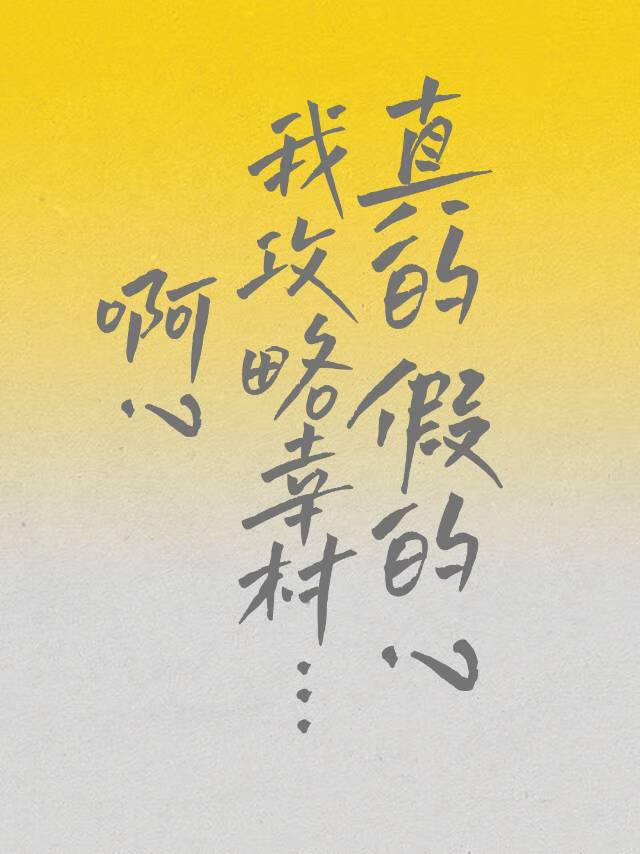 真的假的?
我攻略幸村…
啊?